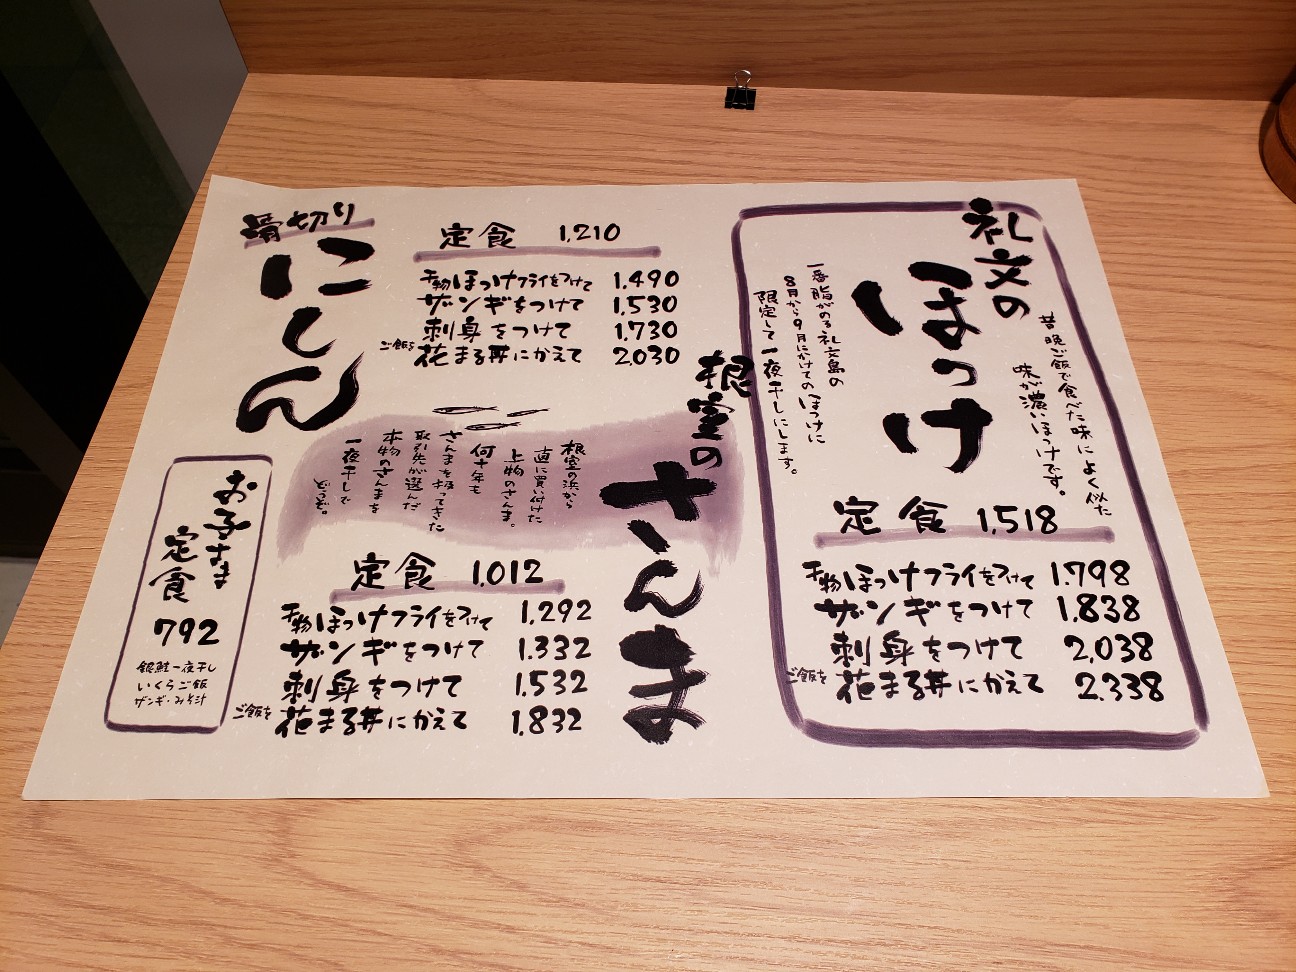 礼文の
ほっけ
昔晩ご飯で食べた味によく似た
味が濃いほっけです。
一番脂がのる礼文島の
8月から9月にかけてのほっけに
限定して一夜干しにします。
定食 1,518
干物ほっけフライをつけて 1,798
ザンギをつけて 1,838
刺身をつけて 2,038
ご飯を花まる丼にかえて 2,338
根室の
さんま
根室の浜から
直に買い付けた
上物のさんま。
何十年も
さんまを扱ってきた
取引先が選んだ
本物のさんまを
一夜干しで
どうぞ。
定食 1,012
干物ほっけフライをつけて 1,292
ザンギをつけて 1,332
刺身をつけて 1,532
ご飯を花まる丼にかえて 1,832
骨切り
にしん
定食 1,210
干物ほっけフライをつけて 1,490
ザンギをつけて 1,530
刺身をつけて 1,730
ご飯を花まる丼にかえて 2,030
お子さま
定食
792
銀鮭一夜干し
いくらご飯
ザンギ・みそ汁